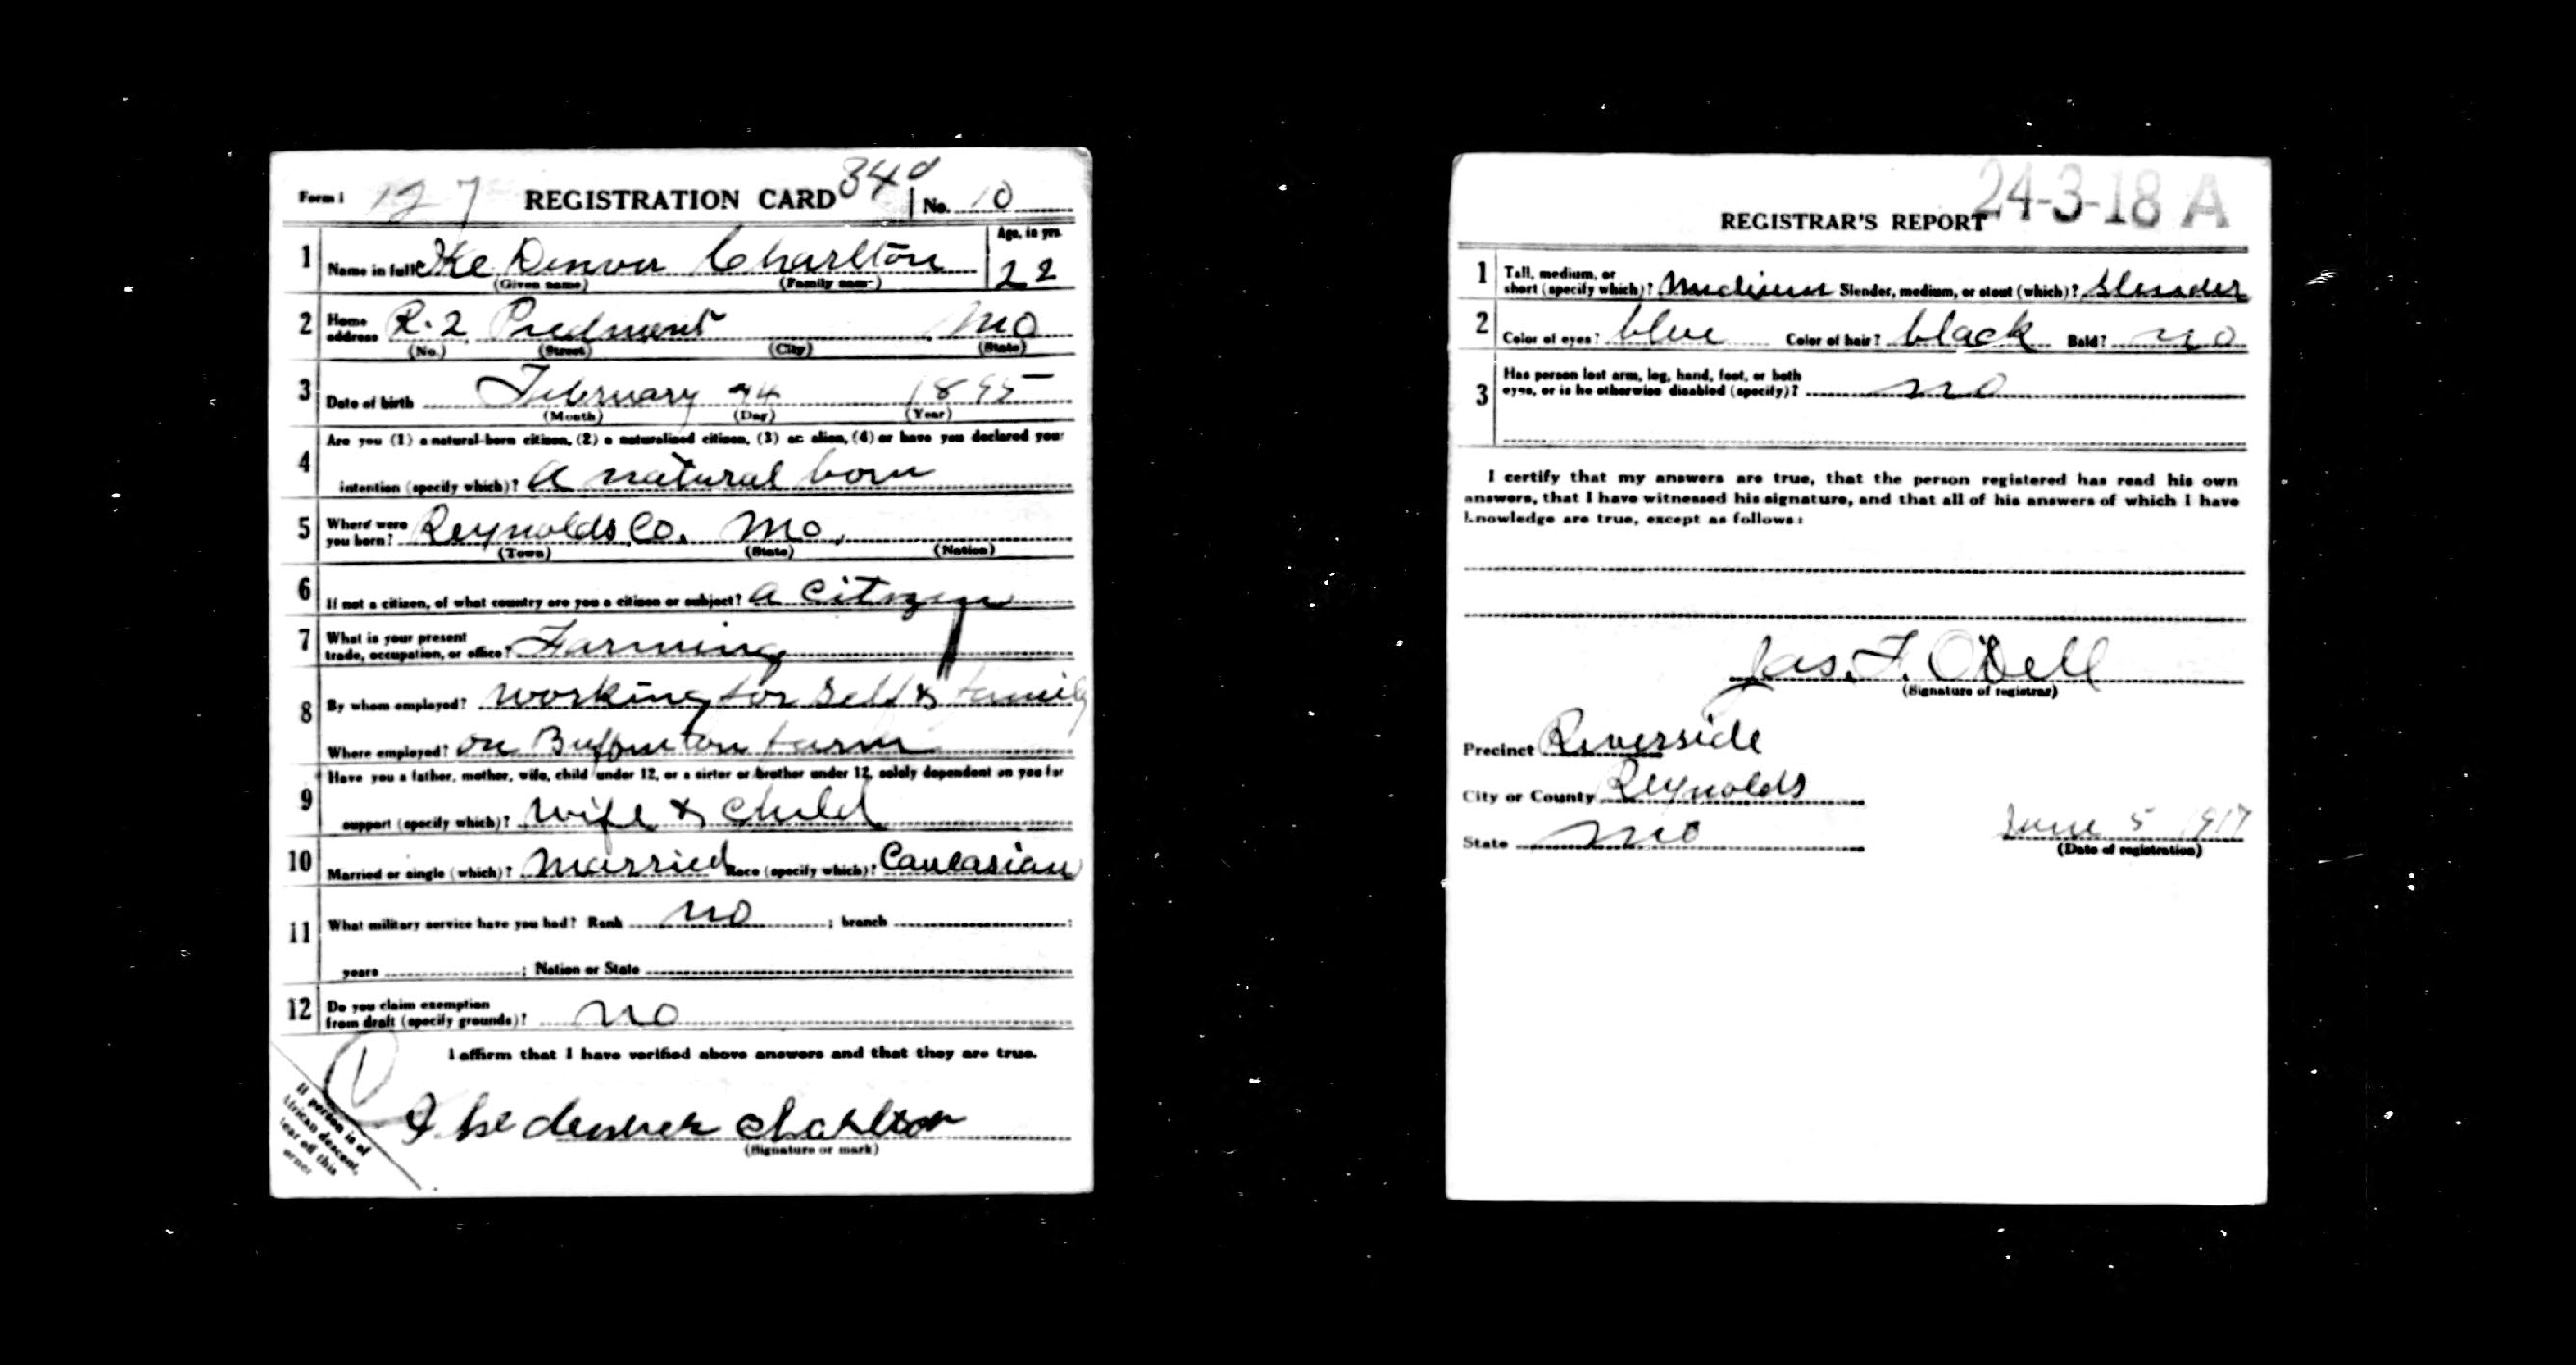 Form 1 127 REGISTRATION CARD 340 No. 10
1 Name in full Ike Denver Charlton Age, in yrs. 22
(Given name) (Family name)
2 Home address R.2 Piedmont Mo
(No.) (Street) (City) (State)
3 Date of birth February 1895
(Month) (Day) (Year)
4 Are you (1) a natural-born citizen, (2) a naturalized citizen, (3) an alien, (4) or have you declared your
intention (specify which)? A natural born
5 Where were you born? Reynolds Co. Mo.
(Town) (State) (Nation)
6 If not a citizen, of what country are you a citizen or subject? A citizen
7 What is your present
trade, occupation, or office? Farming
8 By whom employed? Working for Self & family
Where employed? on farm
9 Have you a father, mother, wife, child under 12, or a sister or brother under 12, solely dependent on you for
support (specify which)? Wife & child
10 Married or single (which)? Married Race (specify which)? Caucasian
11 What military service have you had? Rank no ; branch ;
years ; Nation or State
12 Do you claim exemption
from draft (specify grounds)? No
I affirm that I have verified above answers and that they are true.
Ike denver charlton
(Signature or mark)
If person is of
African descent,
tear off this
corner
24-3-18 A
REGISTRAR'S REPORT
1 Tall, medium, or
short (specify which)? Medium Slender, medium, or stout (which)? Slender
2 Color of eyes? blue Color of hair? black Bald? no
3 Has person lost arm, leg, hand, foot, or both
eyes, or is he otherwise disabled (specify)? no
I certify that my answers are true, that the person registered has read his own
answers, that I have witnessed his signature, and that all of his answers of which I have
knowledge are true, except as follows:
Jas. F. O'Dell
(Signature of registrar)
Precinct Riverside
City or County Reynolds
State Mo June 5 1917
(Date of registration)